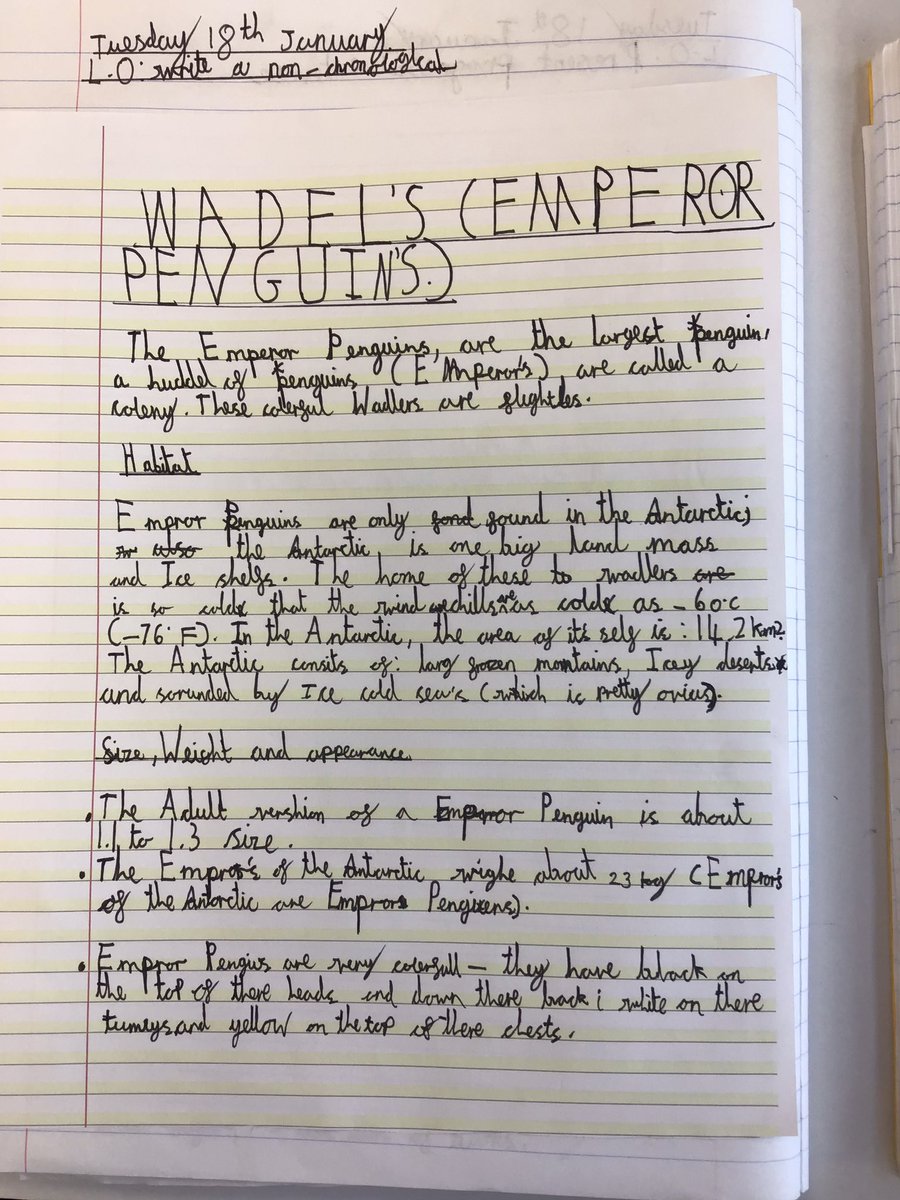 Tuesday 18th January
L.O: write a non-chronological
WADEL'S (EMPEROR
PENGUIN'S.)
The Emperor Penguins, are the largest penguin,
a huddel of penguins (EMperor's), are called a
coleny. These colerful Wadlers are flightles.
Habitat
Empror Penguins are only found in the Antarctic;
the Antarctic, is one big land mass
and Ice shelfs. The home of these to wadlers
is so cold that the wind chills are as cold as -60°c
(-76°F). In the Antarctic, the area of it's self is: 14,2 km².
The Antarctic consits of: larg frozen montains, Icey deserts
and scrunded by Ice cold sea's (which is pretty ovius).
Size, Weight and appearance
• The Adult vershion of a Emperor Penguin is about
1.1 to 1.3 size.
• The Empror's of the Antarctic wighe about 23 kg (Empror's
of the Antarctic are Emprors Penguens).
• Empror Pengius are very colerfull - they have black on
the top of there heads and down there back; white on there
tumeys and yellow on the top of there chests.